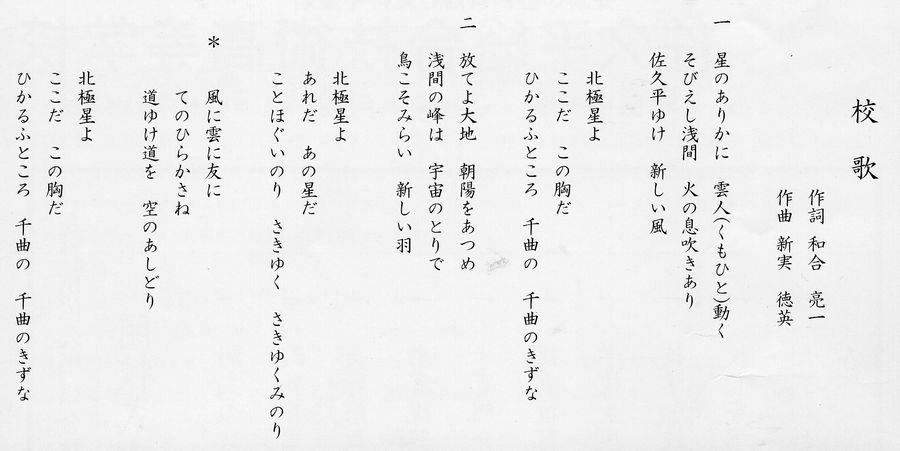 校歌
作詞 和合 亮一
作曲 新実 徳英
一 星のありかに 雲人(くもひと)動く
そびえし浅間 火の息吹きあり
佐久平ゆけ 新しい風
北極星よ
ここだ この胸だ
ひかるふところ 千曲の 千曲のきずな
二 放てよ大地 朝陽をあつめ
浅間の峰は 宇宙のとりで
鳥こそみらい 新しい羽
北極星よ
あれだ あの星だ
ことほぐいのり さきゆく さきゆくみのり
＊ 風に雲に友に
てのひらかさね
道ゆけ道を 空のあしどり
北極星よ
ここだ この胸だ
ひかるふところ 千曲の 千曲のきずな